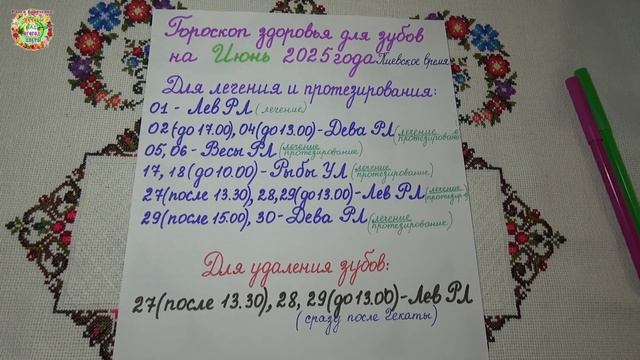 Гороскоп здоровья для зубов
на Июнь 2025 года. Киевское время
Для лечения и протезирования:
01 - Лев РЛ (лечение)
02 (до 17.00), 04 (до 13.00) - Дева РЛ (лечение протезирование)
05, 06 - Весы РЛ (лечение протезирование)
17, 18 (до 10.00) - Рыбы УЛ (лечение протезирование)
27 (после 13.30), 28, 29 (до 13.00) - Лев РЛ (лечение
29 (после 15.00), 30 - Дева РЛ (лечение протезирование)
Для удаления зубов:
27 (после 13.30), 28, 29 (до 13.00) - Лев РЛ
(сразу после Гекаты)